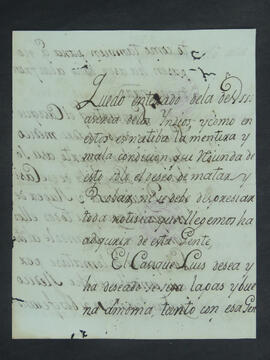 Quedo enterado de la de Vss.
acerca de los Yndios, y como en
estos es nativa la mentira y
mala conducion, y se redunda de
esto solo el deseo de matar y
Robar, no se debe despresiar
toda notisia que llegemos ha
adquirir de esta Gente.
El Casique Luis desea y
ha deseado se vera la pas y bue
na armonia, tanto con esa Gen